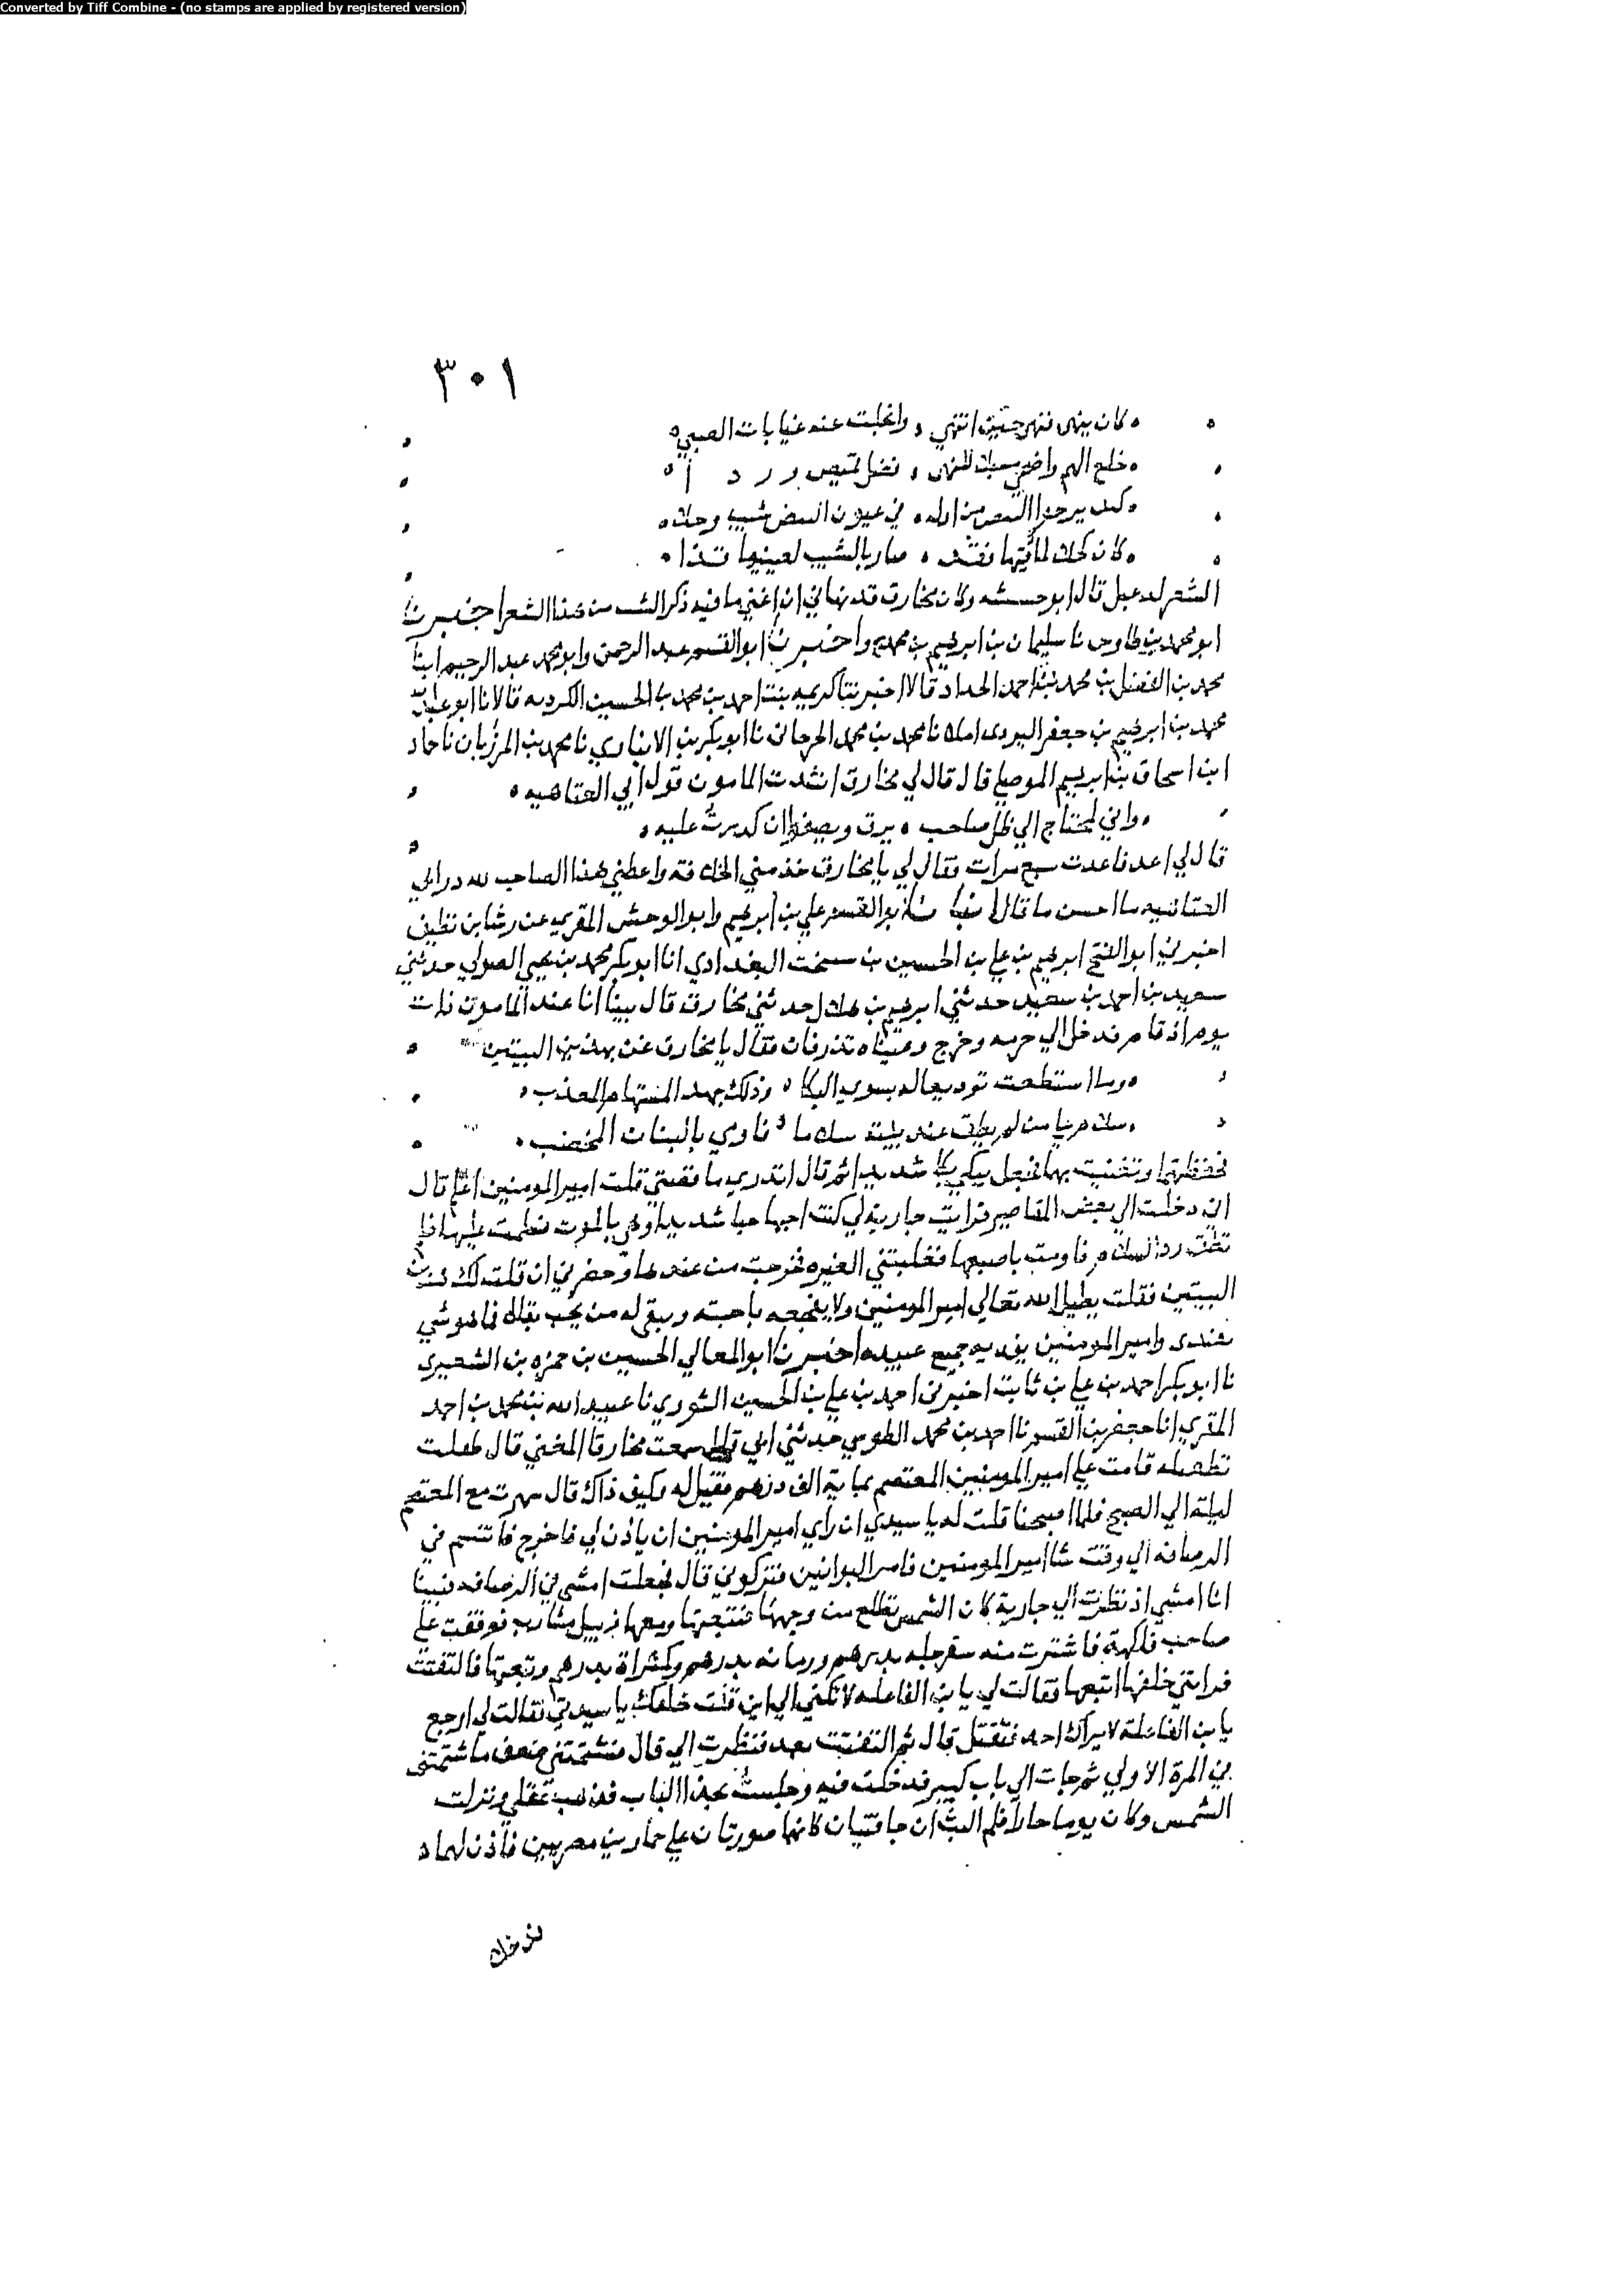 Converted by Tiff Combine - (no stamps are applied by registered version)
٣٠١
كان ينهى فنهى حتين انتهي وانجلت عنه غيابات الصبي
خلع الهم واضحى للنهى
في عيون البيض شيب وجلا
كان كحلا لماقيها فقد صار بالشيب لعينيها قذا
الشعر لدعبل قال ابو حشيشه وكان مخارق قد نهاني ان اغني ما فيه ذكر الشيب من هذا الشعر اخبرنا
ابو محمد بن طاوس نا سليمان بن ابرهيم بن محمد واخبرنا ابو القسم عبد الرحمن وابو محمد عبد الرحيم ابنا
محمد بن الفضل بن محمد بن احمد الحداد قالا اخبرتنا كريمه بنت احمد بن محمد بن الحسين الكرديه قالا نا ابو عبد الله
محمد بن ابرهيم بن جعفر اليزدي املا نا محمد بن محمد الجرجاني نا ابو بكر بن الانباري نا محمد بن المرزبان نا حماد
ابن اسحاق بن ابرهيم الموصلي قال قال لي مخارق انشدت المامون قول ابي العتاهيه
واني لمحتاج الي ظل صاحب يرق ويصفو ان كدرت عليه
قال لي اعد فاعدت سبع مرات فقال لي يا مخارق خذ مني الخلافة واعطني هذا الصاحب لله در ابي
العتاهيه ما احسن ما قال انبانا ابو القسم علي بن ابرهيم وابو الوحش المقري عن رشا بن نظيف
اخبرني ابو الفتح ابرهيم بن علي بن الحسين بن سيبخت البغدادي انا ابو بكر محمد بن يحيي الصولي حدثني
سعيد بن احمد بن سعيد حدثني ابرهيم بن هلال حدثني مخارق قال بينا انا عند المامون ذات
يوم اذ قام فدخل الي حرمه وخرج وعيناه تذرفان فقال يا مخارق غن بهذين البيتين
وما استطعت توديعا له بسوي البكا وذلك جهد المستهام المعذب
سلام علي من لم يطق عند بينه سلاما فاومي بالبنان المخضب
فحفظتهما وتغنيت بهما فجعل يبكي بكا شديدا ثم قال اتدري ما قصتي قلت امير المومنين اعلم قال
اني دخلت الي بعض المقاصير فرايت جارية لي كنت احبها حبا شديدا وهي بالموت فسلمت عليها فلم
تطق رد السلام فاومت باصبعها فغلبتني العبره فخرجت من عندها وحضرني ان قلت لك هذين
البيتين فقلت يطيل الله تعالي امير المومنين ولا يفجعه باحبته ويبقي له من يحب بقاه فما هو شي
يفتدى وامير المومنين يفديه جميع عبيده اخبرنا ابو المعالي الحسين بن حمزه بن الشعيري
نا ابو بكر احمد بن علي بن ثابت اخبرني احمد بن علي بن الحسين الثوري نا عبيد الله بن محمد بن احمد
المقري انا جعفر بن القسم نا احمد بن محمد الطوسي حدثني ابي قال سمعت مخارقا المغني قال طفلت
تطفيله قامت علي امير المومنين المعتصم بماية الف درهم فقيل له وكيف ذاك قال سهرت مع المعتصم
ليلة الي الصبح فلما اصبحنا قلت له يا سيدي ان راي امير المومنين ان ياذن لي فاخرج فاتنسم في
الرصافه الي وقت شا امير المومنين فامر البوابين فتركوني قال فجعلت امشي في الرصافه فبينا
انا امشي اذ نظرت الي جارية كان الشمس تطلع من وجهها فتتبعتها ومعها زبيل مشارب فوقفت علي
صاحب فاكهة فاشترت منه سفرجله بدرهم ورمانه بدرهم وكمثراة بدرهم وتبعتها فالتفتت
فراتني خلفها اتبعها فقالت لي يا بن الفاعله لا تكني الي اين قلت خلفك يا سيدتي فقالت لي ارجع
يا بن الفاعلة لا يراك احد فتقتل قال ثم التفتت بعد فنظرت الي قال فشتمتني ضعف ما شتمتني
في المرة الاولي ثم جات الي باب كبير فدخلت فيه وجلست بحذا الباب فذهب عقلي ونزلت
الشمس وكان يوما حارا فلم البث ان جا فتيان كانهما صورتان علي حمارين مصريين فاذن لهما
فدخلا